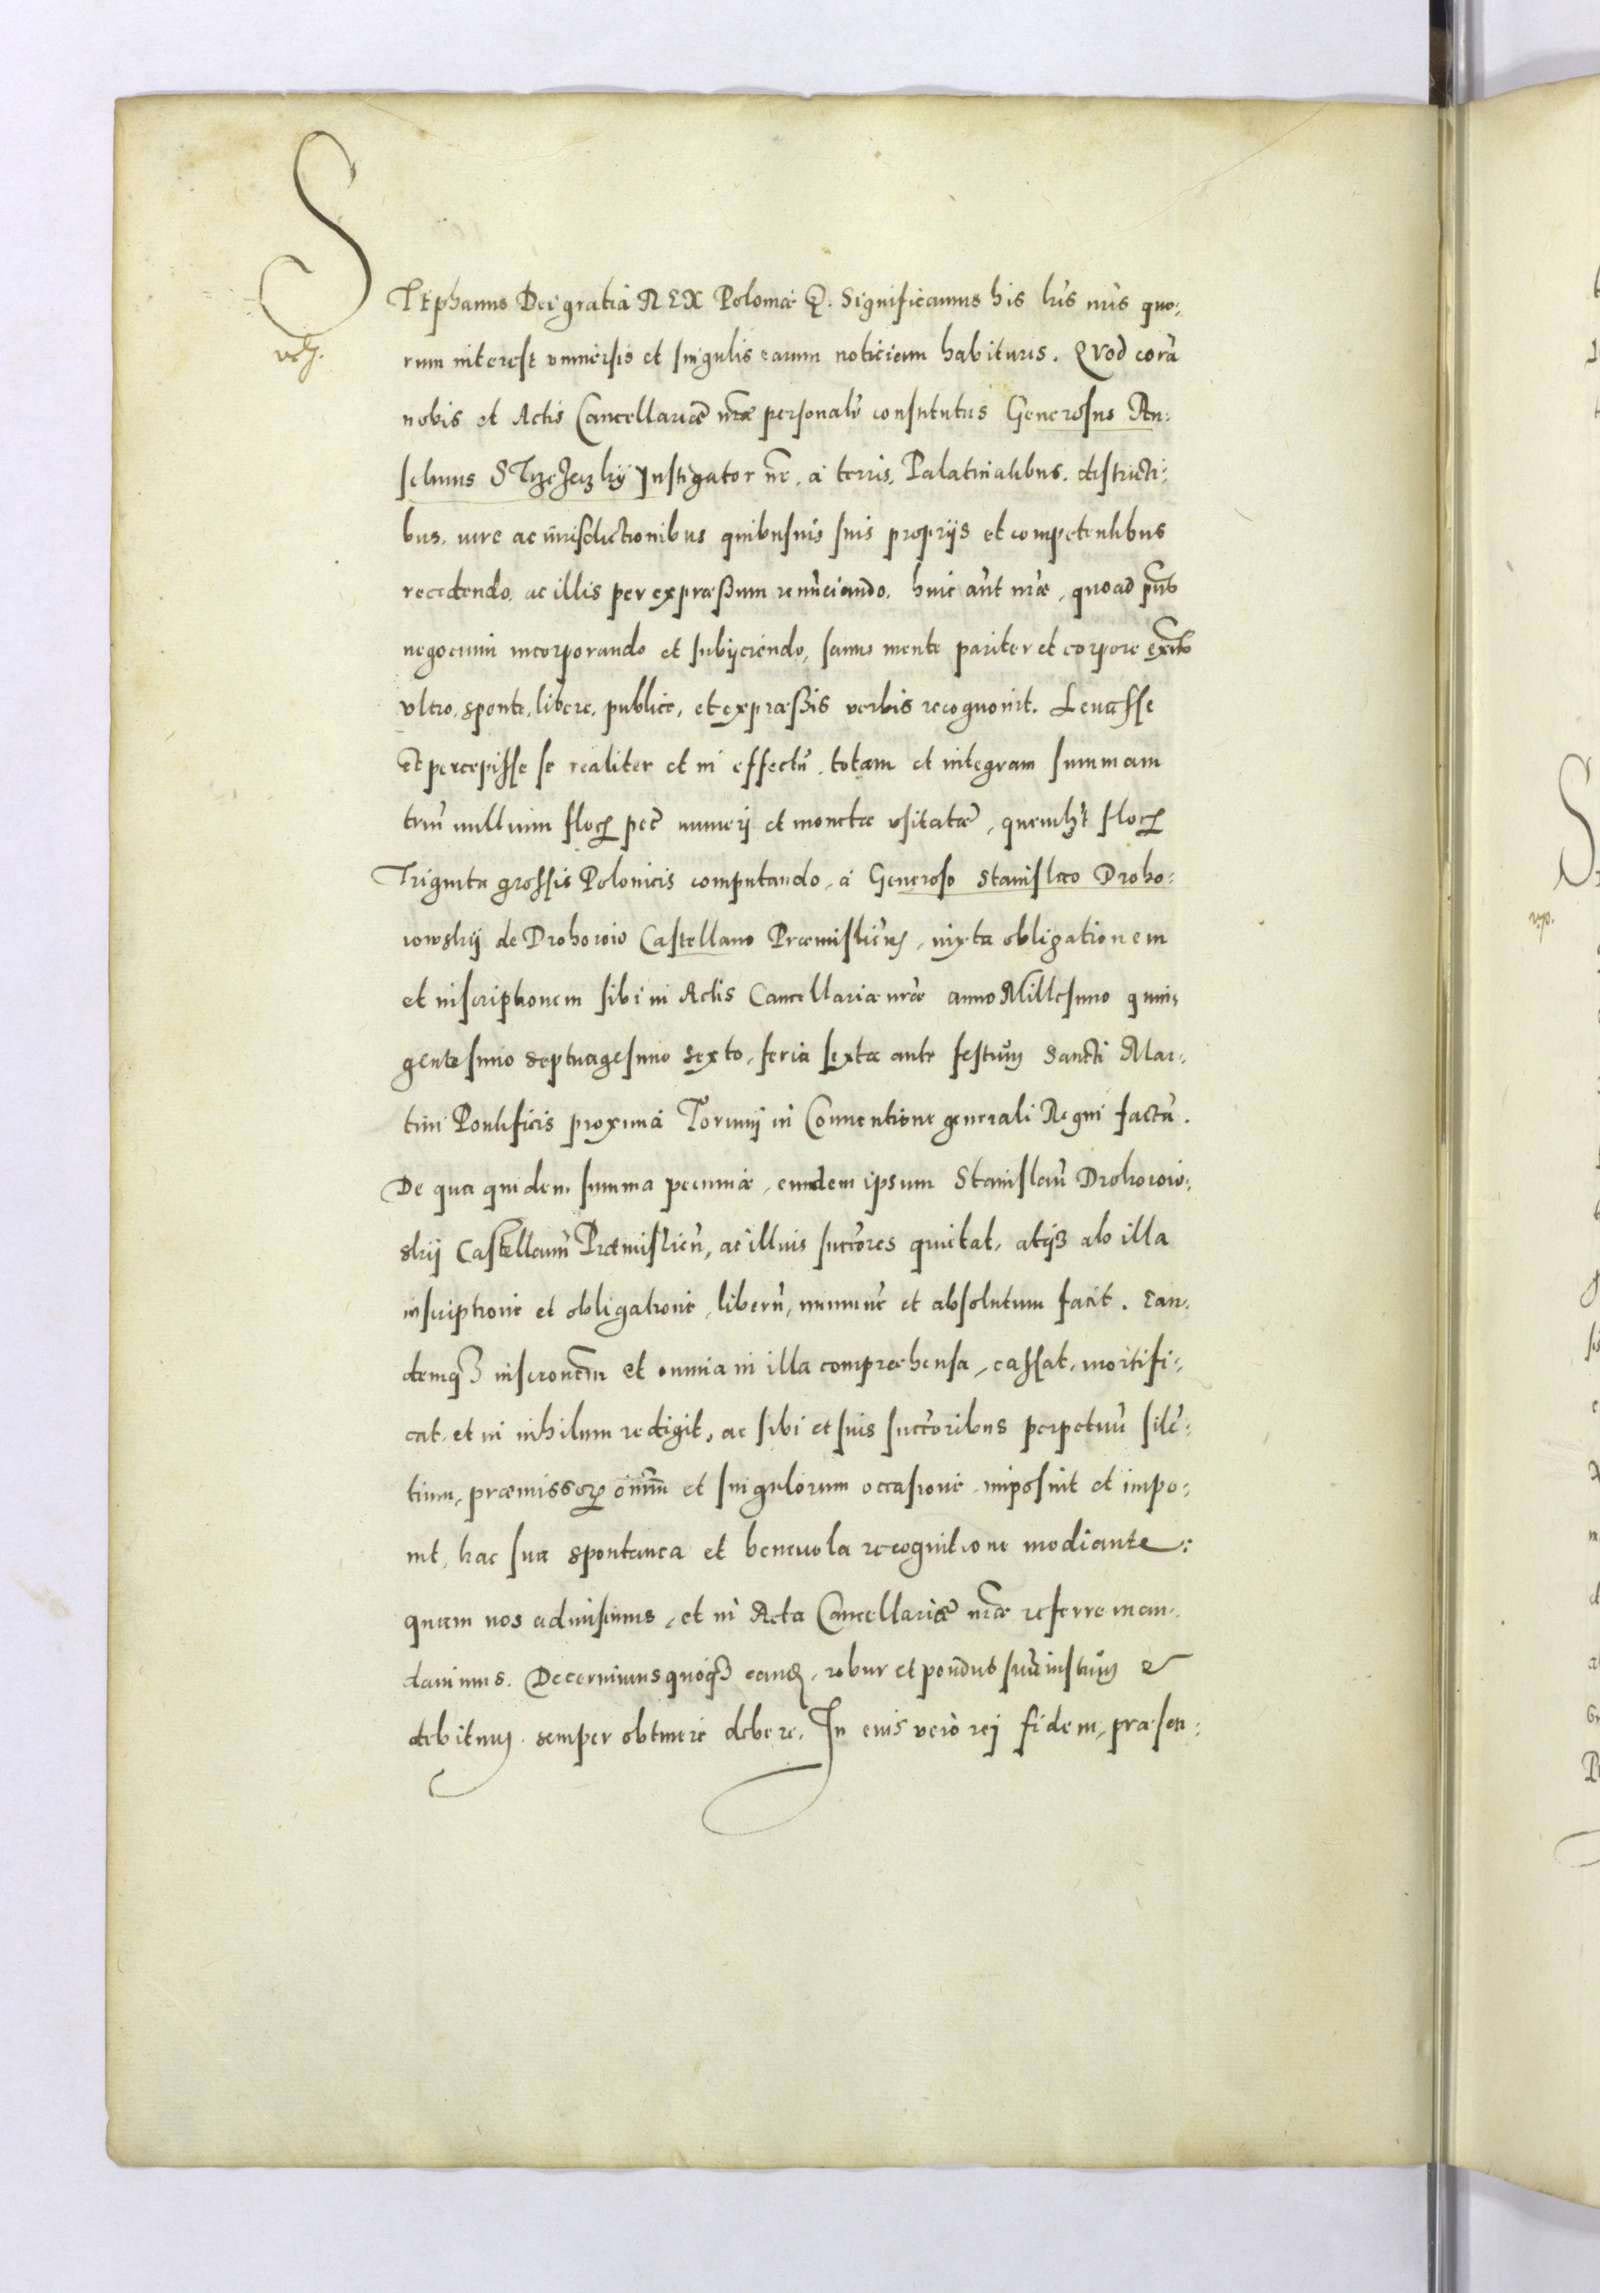 STEphanus Dei gratia REX Poloniæ &. Significamus his lr̃is nr̃is quo:
rum interest vniuersis et singulis earum noticiam habituris. QVod corã
nobis et Actis Cancellariæ nr̃æ personalr̃ constitutus Generosus An:
selmus STrzeżeczkÿ Instigator nr̃. a terris, Palatinatibus. districti:
bus. iure ac iurisdictionibus quibusuis suis proprijs et competentibus
recedendo. ac illis per expræssum renũciando. huic aũt nr̃æ, quoad pr̃ns
negocium incorporando et subijciendo, sanus mente pariter et corpore exñs
vltro, sponte, libere, publice, et expræssis verbis recognouit. Leuasse
et percepisse se realiter et in effectũ. totam et integram summam
triũ millium floꝝ pec̃ numeri et monetæ vsitatæ, quemlz̃t floꝝ
Triginta grossis Polonicis computando, a Generoso Stanislao Droho:
iowskij de Drohoioio Castellano Præmislieñ, iuxta obligationem
et inscriptionem sibi in Actis Cancellariæ nr̃æ anno Millesimo quin:
gentesimo septuagesimo sexto, feria sexta ante festum Sancti Mar:
tini Pontificis proxima Torunij in Conuentione generali Regni factũ.
De qua quidem summa pecuniæ, eundem ipsum Stanislaũ Drohoioio:
skij Castellanũ Præmislieñ, ac illius succ̃ores quietat, atqꝫ ab illa
inscriptione et obligatione, liberũ, immunẽ et absolutum facit. Ean:
demqꝫ inscr̃onem et omnia in illa compræhensa, cassat, mortifi:
cat, et in nihilum redigit, ac sibi et suis succ̃oribus perpetuũ silẽ:
tium, præmissoꝝ om̃ium et singulorum occasione, imposuit et impo:
nit, hac sua spontanea et beneuola recognitione mediante:
quam nos admisimus, et in Acta Cancellariæ nr̃æ referre man:
dauimus. Decernimus quoqꝫ eandẽ, robur et pondus suũ iustum &
debitum. semper obtinere debere. In cuis vero rej fidem, præsen: